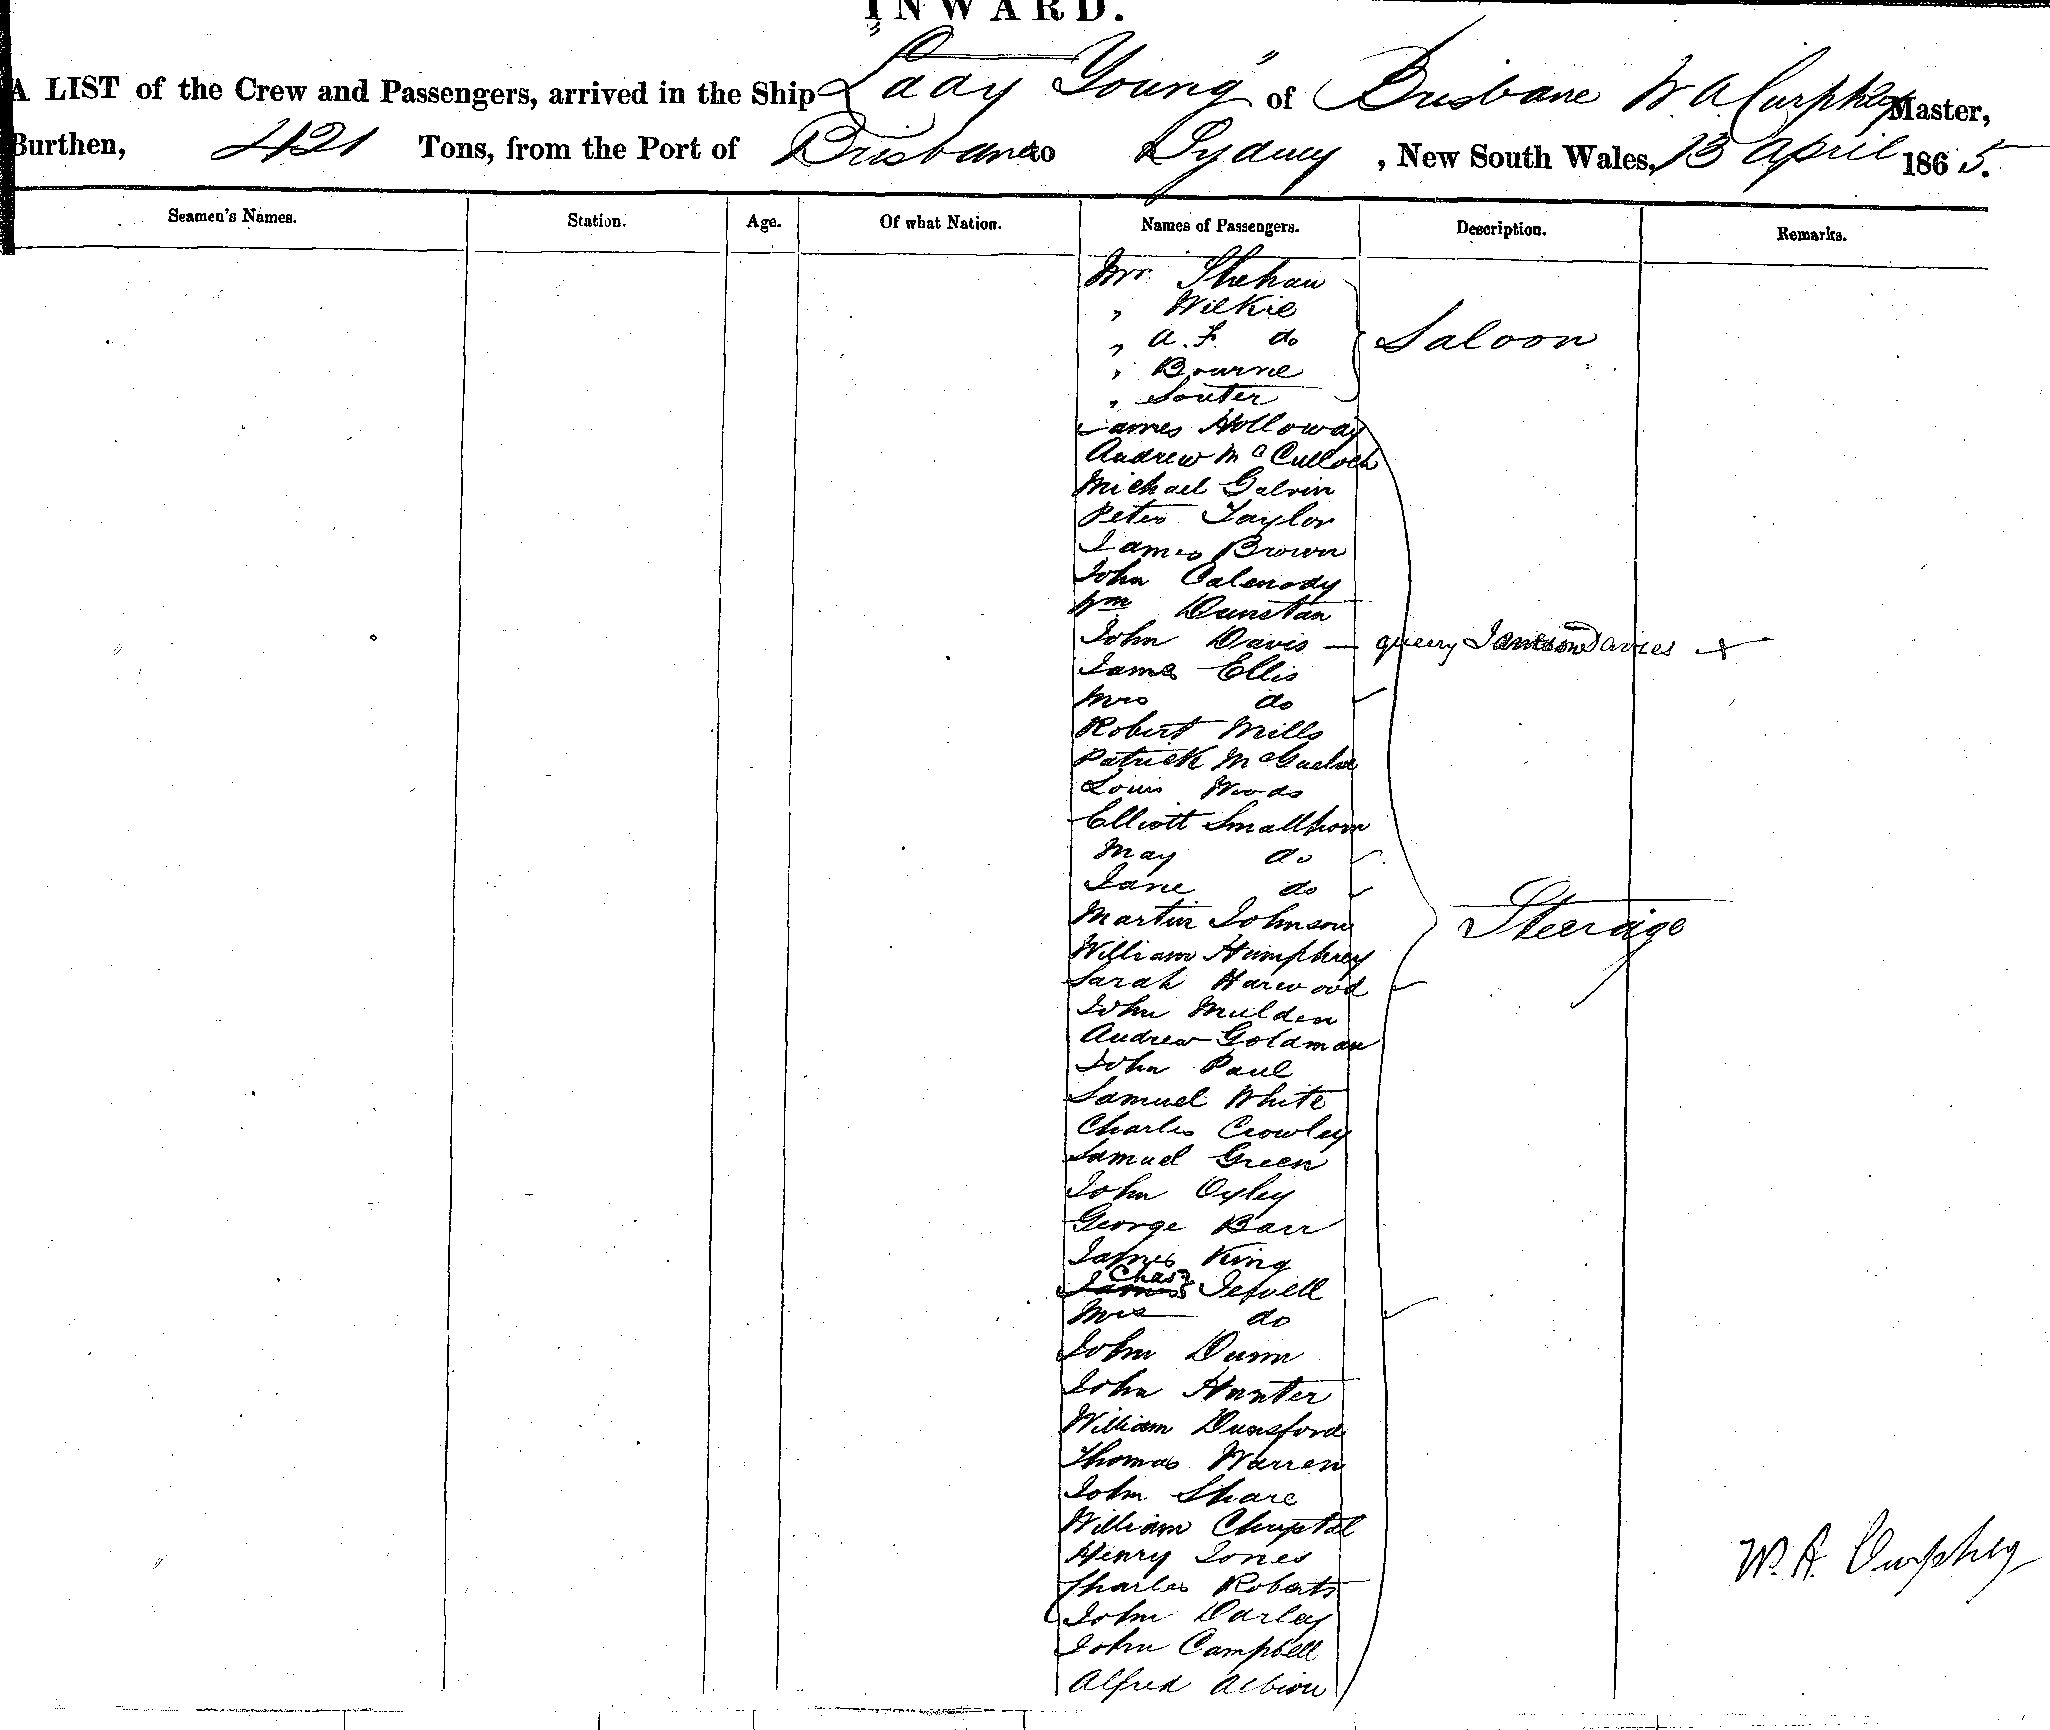 INWARD.
A LIST of the Crew and Passengers, arrived in the Ship "Lady Young" of Brisbane W. A. Curphey Master,
Burthen, 421 Tons, from the Port of Brisbane to Sydney, New South Wales, 13 April 1865.
Seamen's Names. Station. Age. Of what Nation. Names of Passengers. Description. Remarks.
Mr. Shehan
" Wilkie
" A. F. do Saloon
" Bourne
" Souter
James Holloway
Andrew McCulloch
Michael Galvin
Peter Taylor
James Brown
John
Wm Dunstan
John Davis — query Davies x
James Ellis
Mrs do
Robert Mills
Patrick
Louis Woods
Elliott Smallhorn
May do
Jane do
Martin Johnson Steerage
William Humphrey
Sarah Harwood
John Mulden
Andrew Goldman
John Paul
Samuel White
Charles Crowley
Samuel Green
John Oxley
George Barr
James King
Chas Jewell
Mrs do
John Dunn
John Hunter
William Dunsford
Thomas Warren
John Share
William
Henry Jones
Charles Roberts
John Darley
John Campbell
Alfred Albion
W. A. Curphey